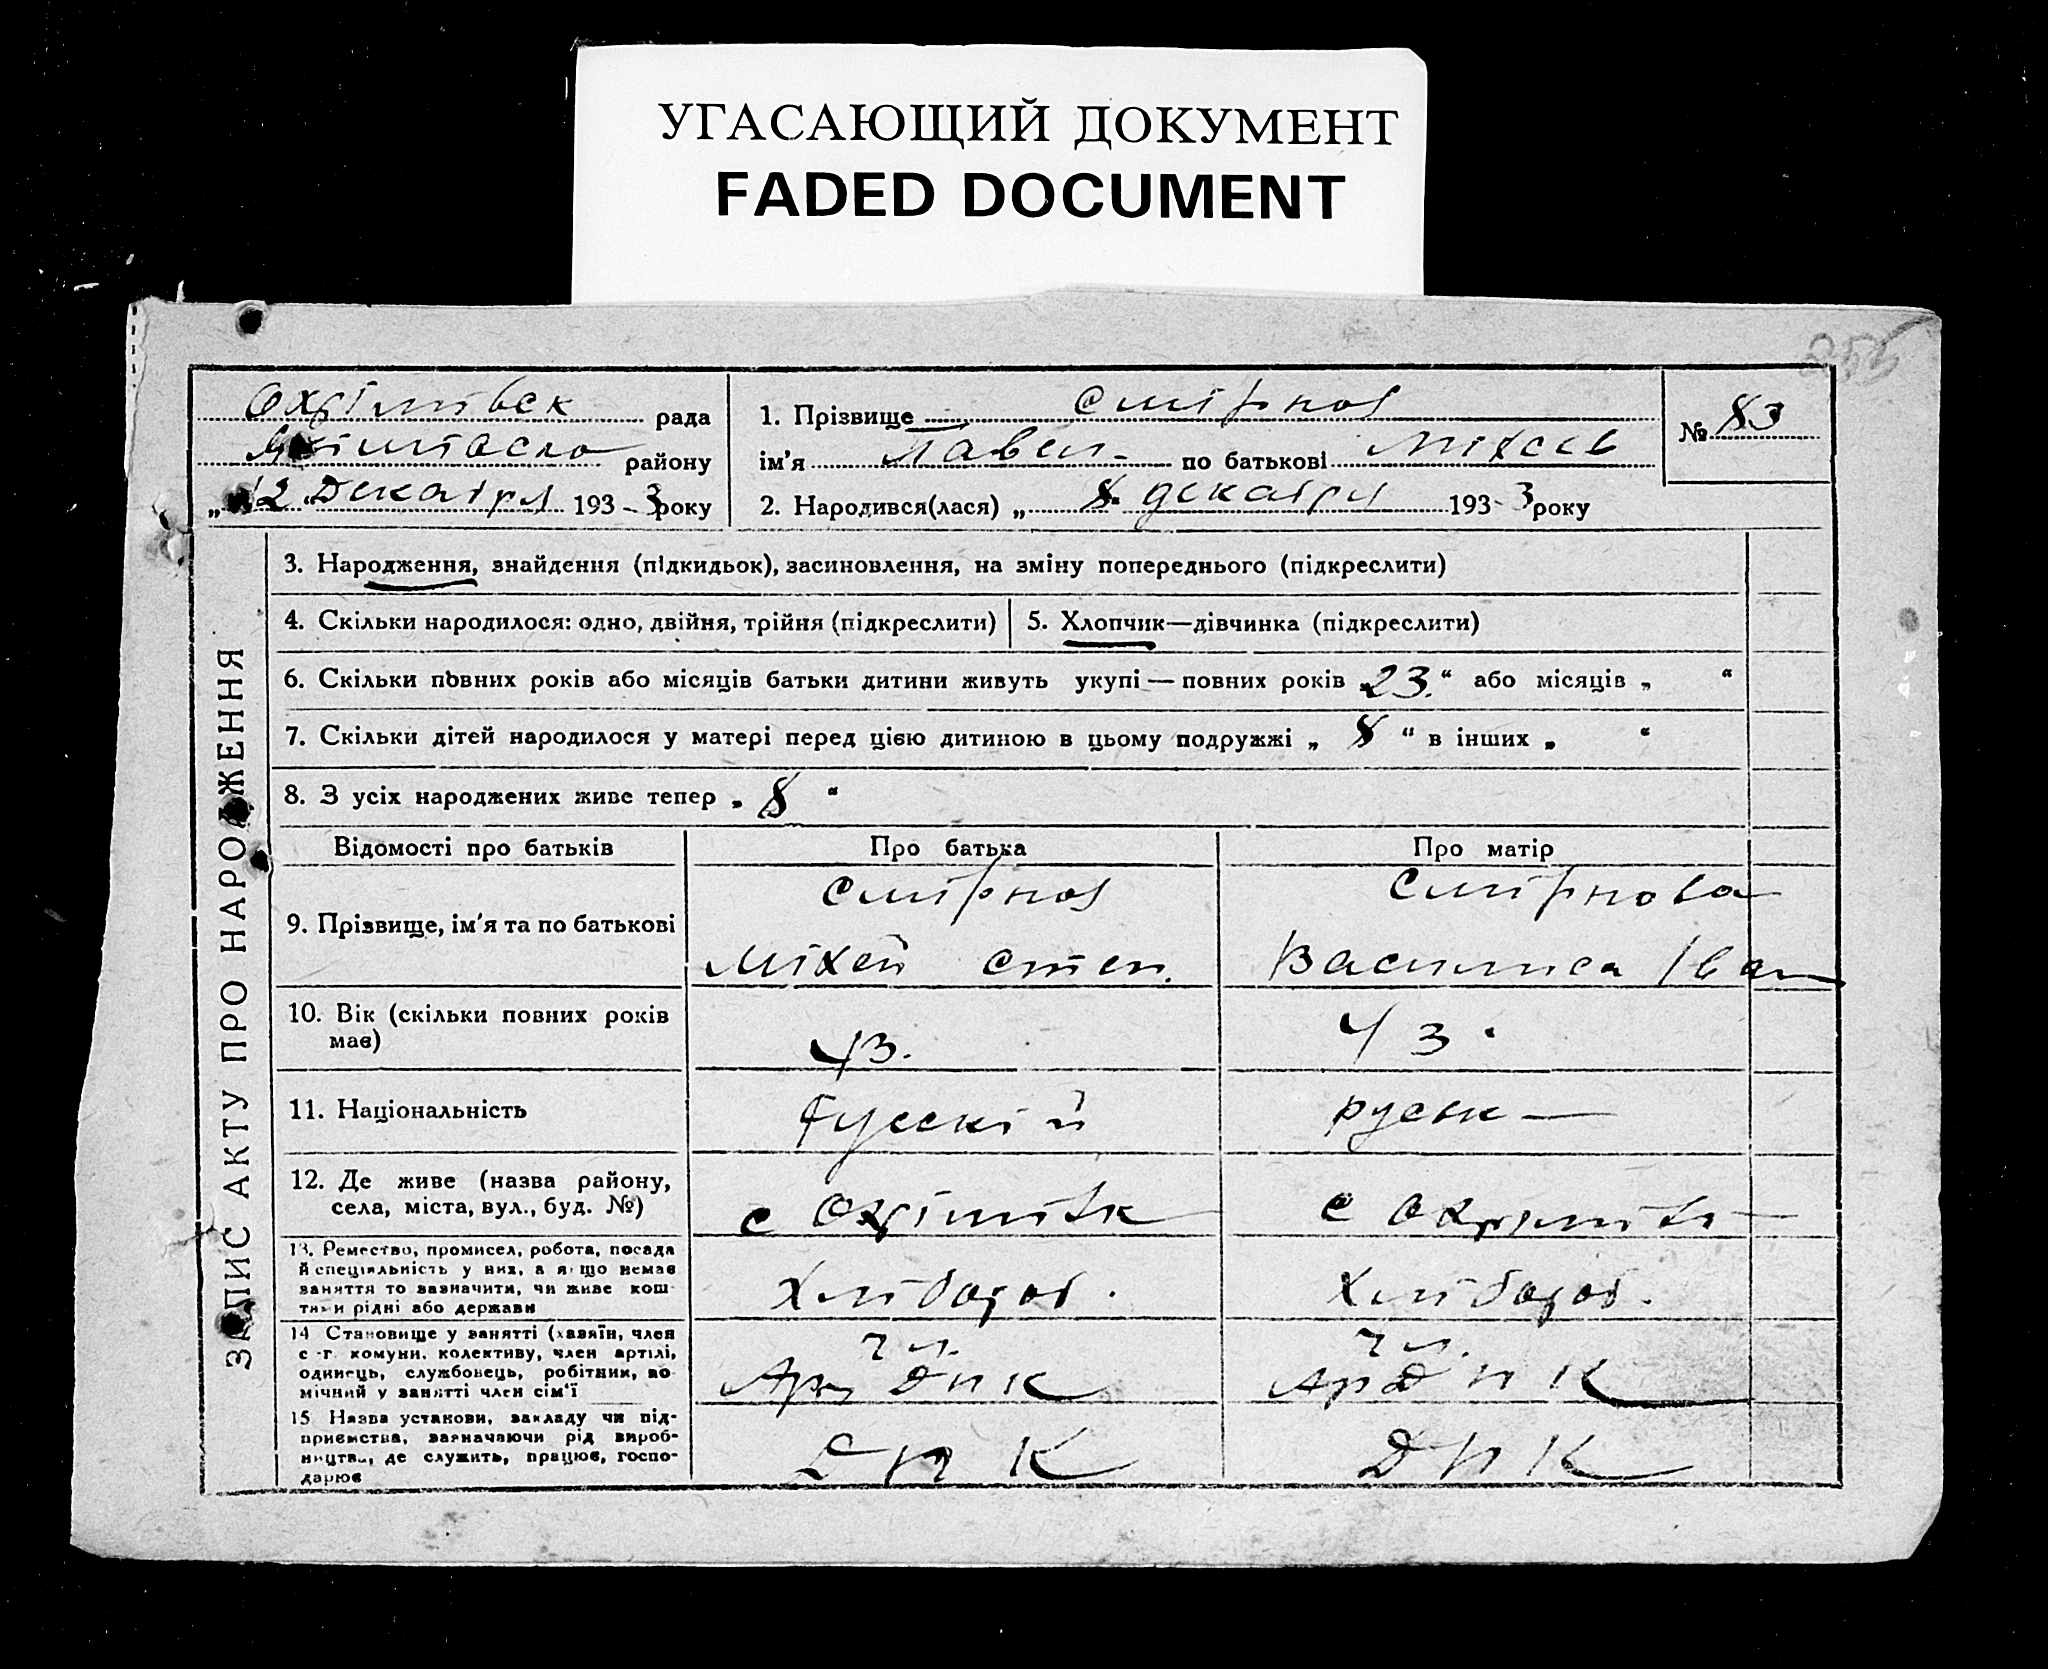 УГАСАЮЩИЙ ДОКУМЕНТ
FADED DOCUMENT
Охрімівск рада
району
„12“ Декабря 193-3 року
1. Прізвище Смірнов
ім'я Павел по батькові Міхеев
2. Народився(лася) „8“ декабря 193-3 року
№ 83
ЗАПИС АКТУ ПРО НАРОДЖЕННЯ
3. Народження, знайдення (підкидьок), засиновлення, на зміну попереднього (підкреслити)
4. Скільки народилося: одно, двійня, трійня (підкреслити)
5. Хлопчик—дівчинка (підкреслити)
6. Скільки повних років або місяців батьки дитини живуть укупі — повних років „23.“ або місяців „ “
7. Скільки дітей народилося у матері перед цією дитиною в цьому подружжі „ 8 “ в інших „ “
8. З усіх народжених живе тепер „ 8 “
Відомості про батьків
Про батька
Про матір
9. Прізвище, ім'я та по батькові
Смірнов
Міхей Степ.
Смірнова
Василиса Іван
10. Вік (скільки повних років
має)
43.
43.
11. Національність
Русскій
руськ—
12. Де живе (назва району,
села, міста, вул., буд. №)
с Охрімівк
с Охрімів
13. Ремество, промисел, робота, посада
й спеціяльність у них, а якщо немає
заняття то зазначити, чи живе кош-
тами рідні або держави
Хлібороб.
Хлібороб.
14 Становище у занятті (хазяїн, член
с.-г. комуни, колективу, член артілі,
одинець, службовець, робітник, по-
мічний у занятті член сім'ї
чл.
ДНК
чл.
ДНК
15 Назва установи, закладу чи під-
приємства, зазначаючи рід вироб-
ництва, де служить, працює, госпо-
дарює
ДНК
ДНК